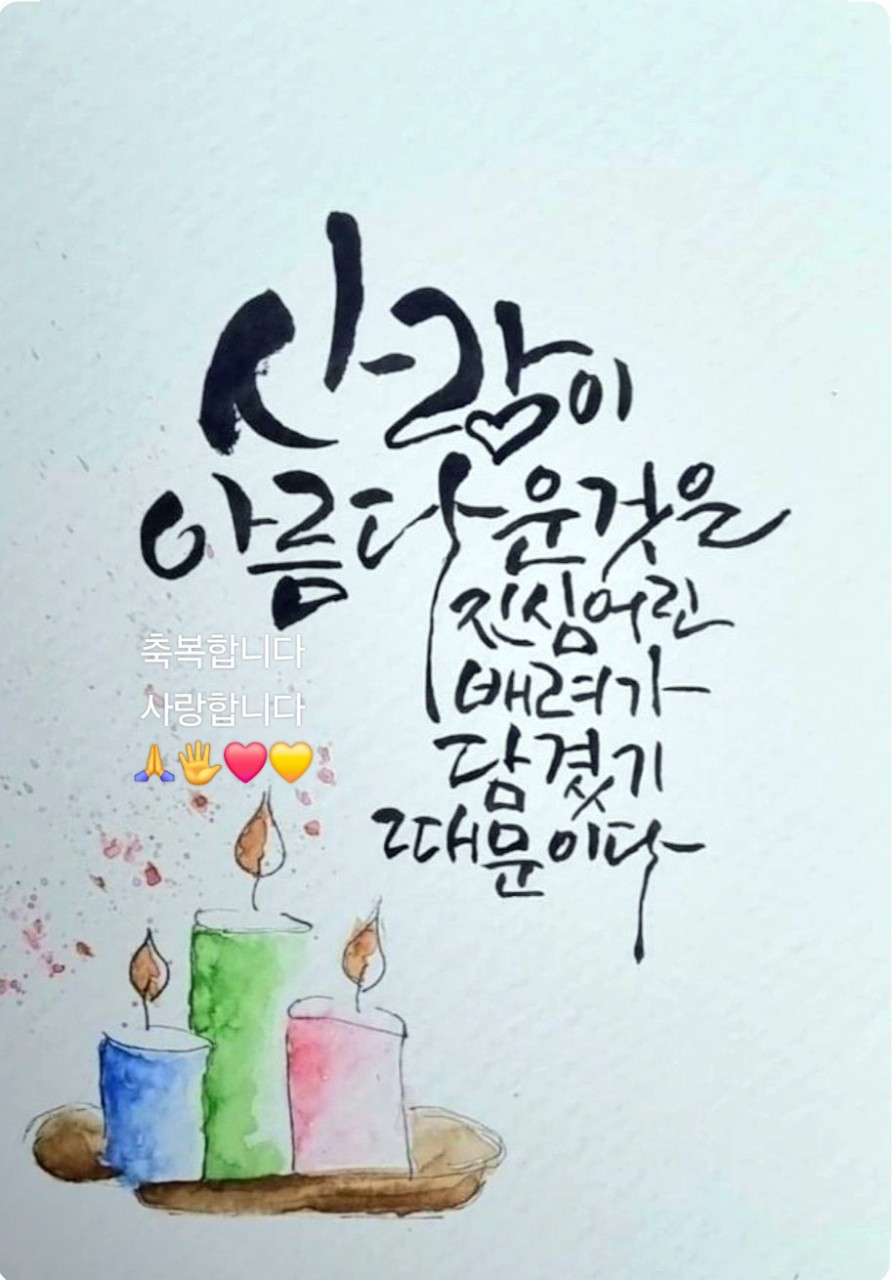 사람이
아름다운것은
진심어린
배려가
담겼기
때문이다
축복합니다
사랑합니다
🙏🖐❤️💛